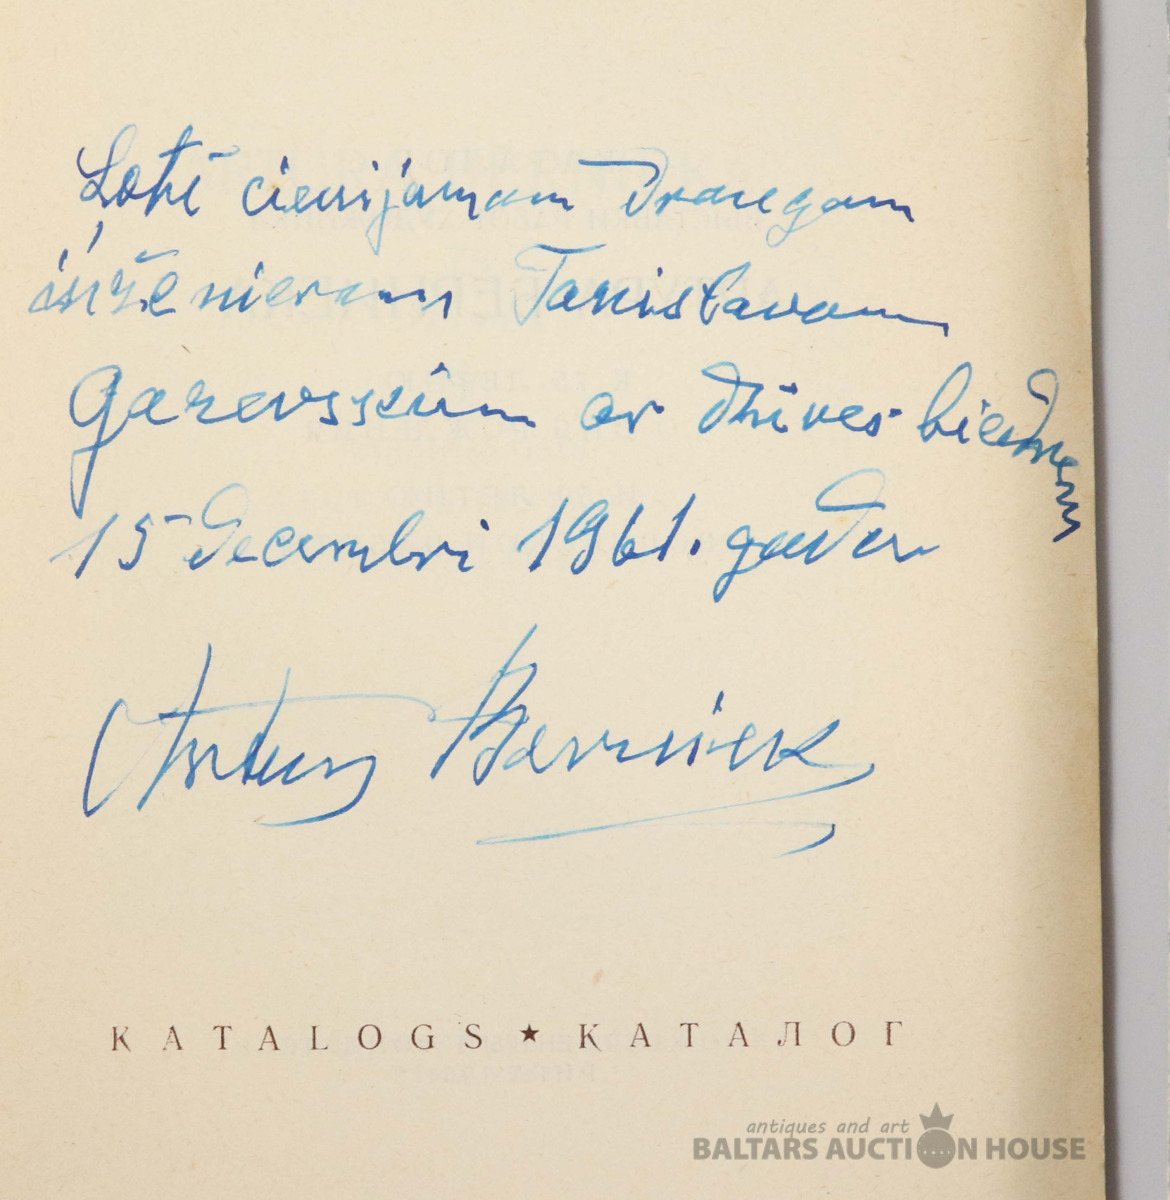 Ļoti cienijamam draugam
inženieram Tanislavam
Garevskim ar dzīves biedreni
15 decembri 1961. gadā
Arturs Bernieks
KATALOGS ★ КАТАЛОГ
antiques and art
BALTARS AUCTION HOUSE